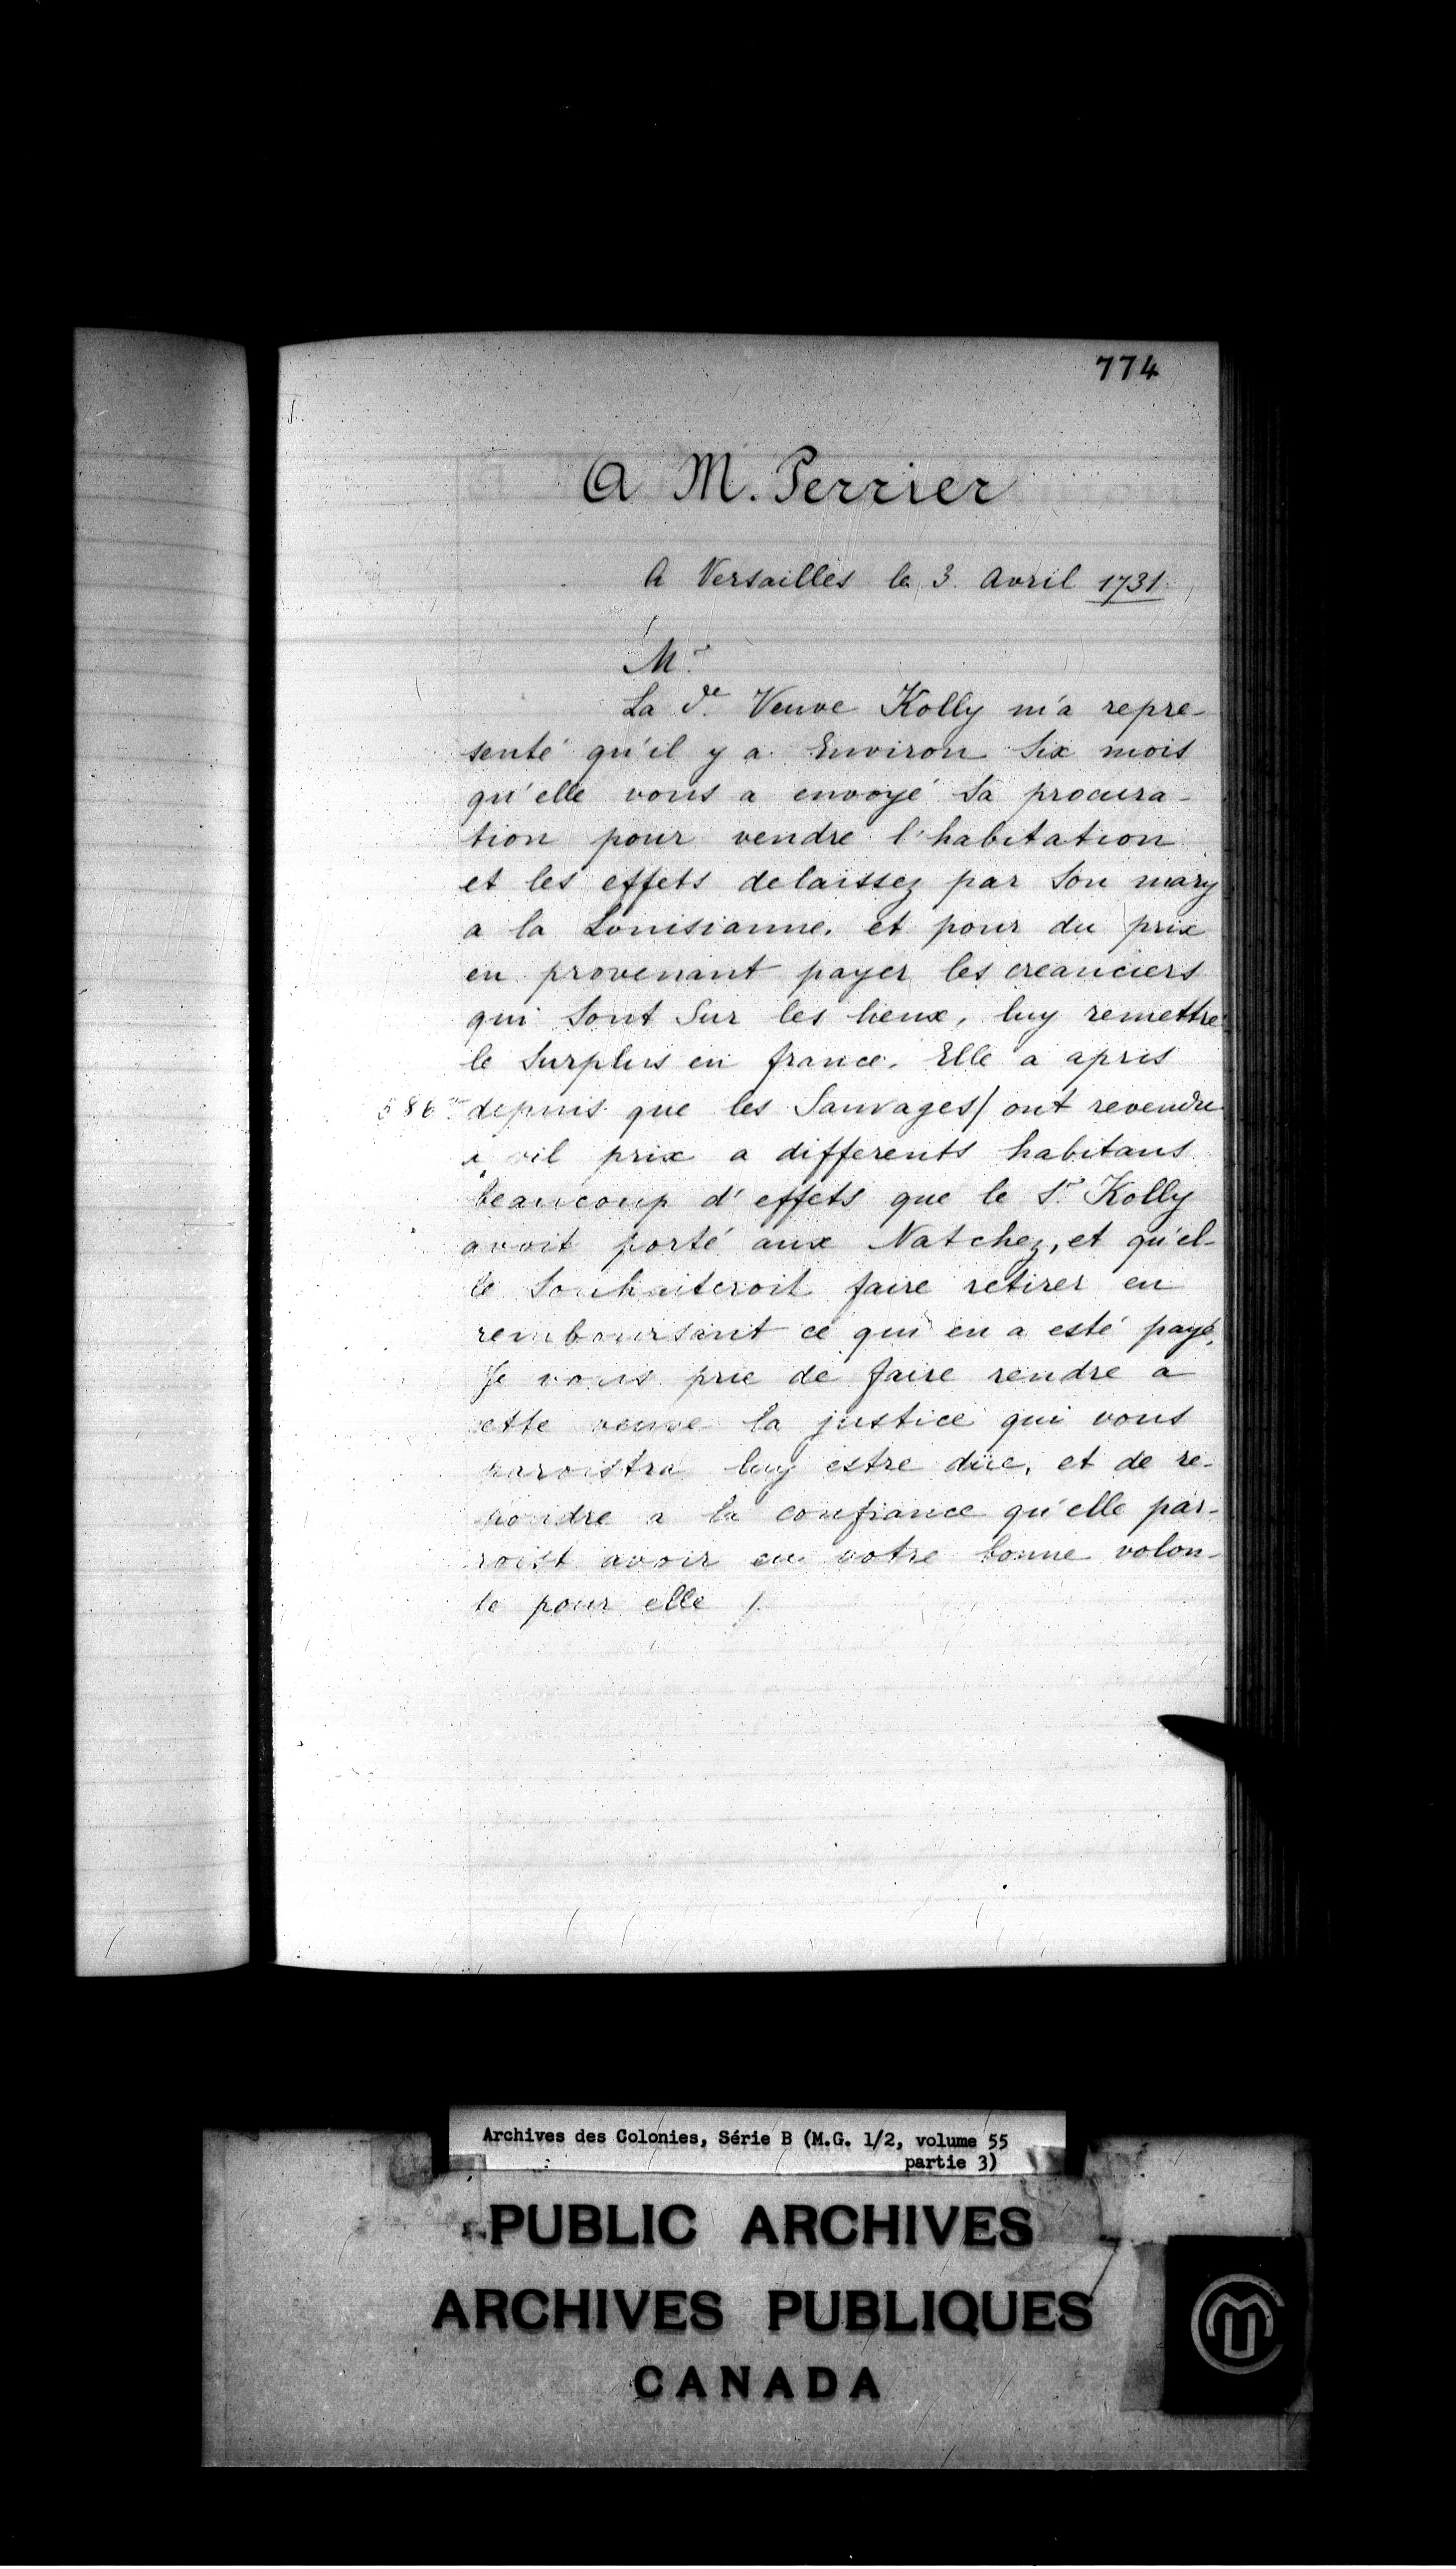 774
A M. Perrier
A Versailles le 3. Avril 1731.
Mr
La de. Veuve Kolly m'a repre-
senté qu'il y a Environ Six mois
qu'elle vous a envoyé Sa procura-
tion pour vendre l'habitation
et les effets delaissez par Son mary
a la Louisianne. et pour du prix
en provenant payer les creanciers
qui Sont Sur les lieux, luy remettre
le Surplus en france. Elle a apris
586 depuis que les Sauvages/ ont revendu
a vil prix a differents habitans
beaucoup d'effets que le Sr. Kolly
avoit porté aux Natchez, et qu'el-
le Souhaiteroit faire retirer en
remboursant ce qui en a esté payé.
Je vous prie de faire rendre a
cette veuve la justice qui vous
paroistra luy estre düe, et de re-
pondre a la confiance qu'elle par-
roist avoir en votre bonne volon-
te pour elle /.
Archives des Colonies, Série B (M.G. 1/2, volume 55
partie 3)
PUBLIC ARCHIVES
ARCHIVES PUBLIQUES
CANADA